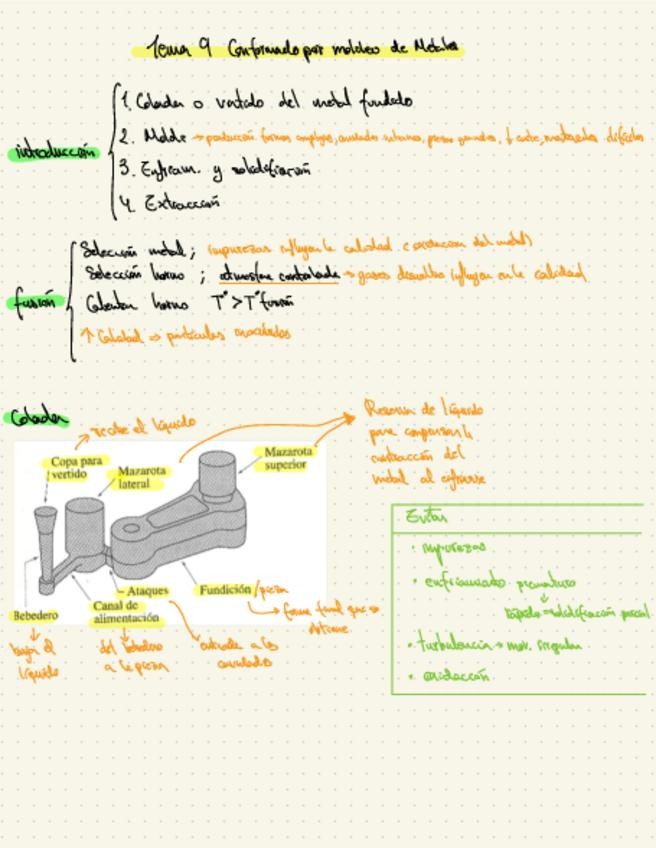 Tema 9 Conformado por moldeo de Metales
introducción
1. Colada o vertido del metal fundido
2. Molde → producción formas complejas, cavidades internas, piezas grandes, ↓ coste, materiales difíciles
3. Enfriam. y solidificación
4. Extracción
fusión
Selección metal; impurezas influyen la calidad
Selección horno; atmosfera controlada → gases disueltos influyen en la calidad
Calentar horno Tª > Tª fusión
↑ Calidad ⇒ partículas
Colada
recibe el líquido
Copa para
vertido
Mazarota
lateral
Mazarota
superior
Reserva de líquido
para compensar la
contracción del
metal al enfriarse
Bebedero
Canal de
alimentación
Ataques
Fundición / pieza
forma final que se
obtiene
baja el
líquido
del bebedero
a la pieza
entrada a las
cavidades
Evitar
• impurezas
• enfriamiento prematuro
rápido → solidificación parcial
• turbulencia → mov. irregular
• oxidacción